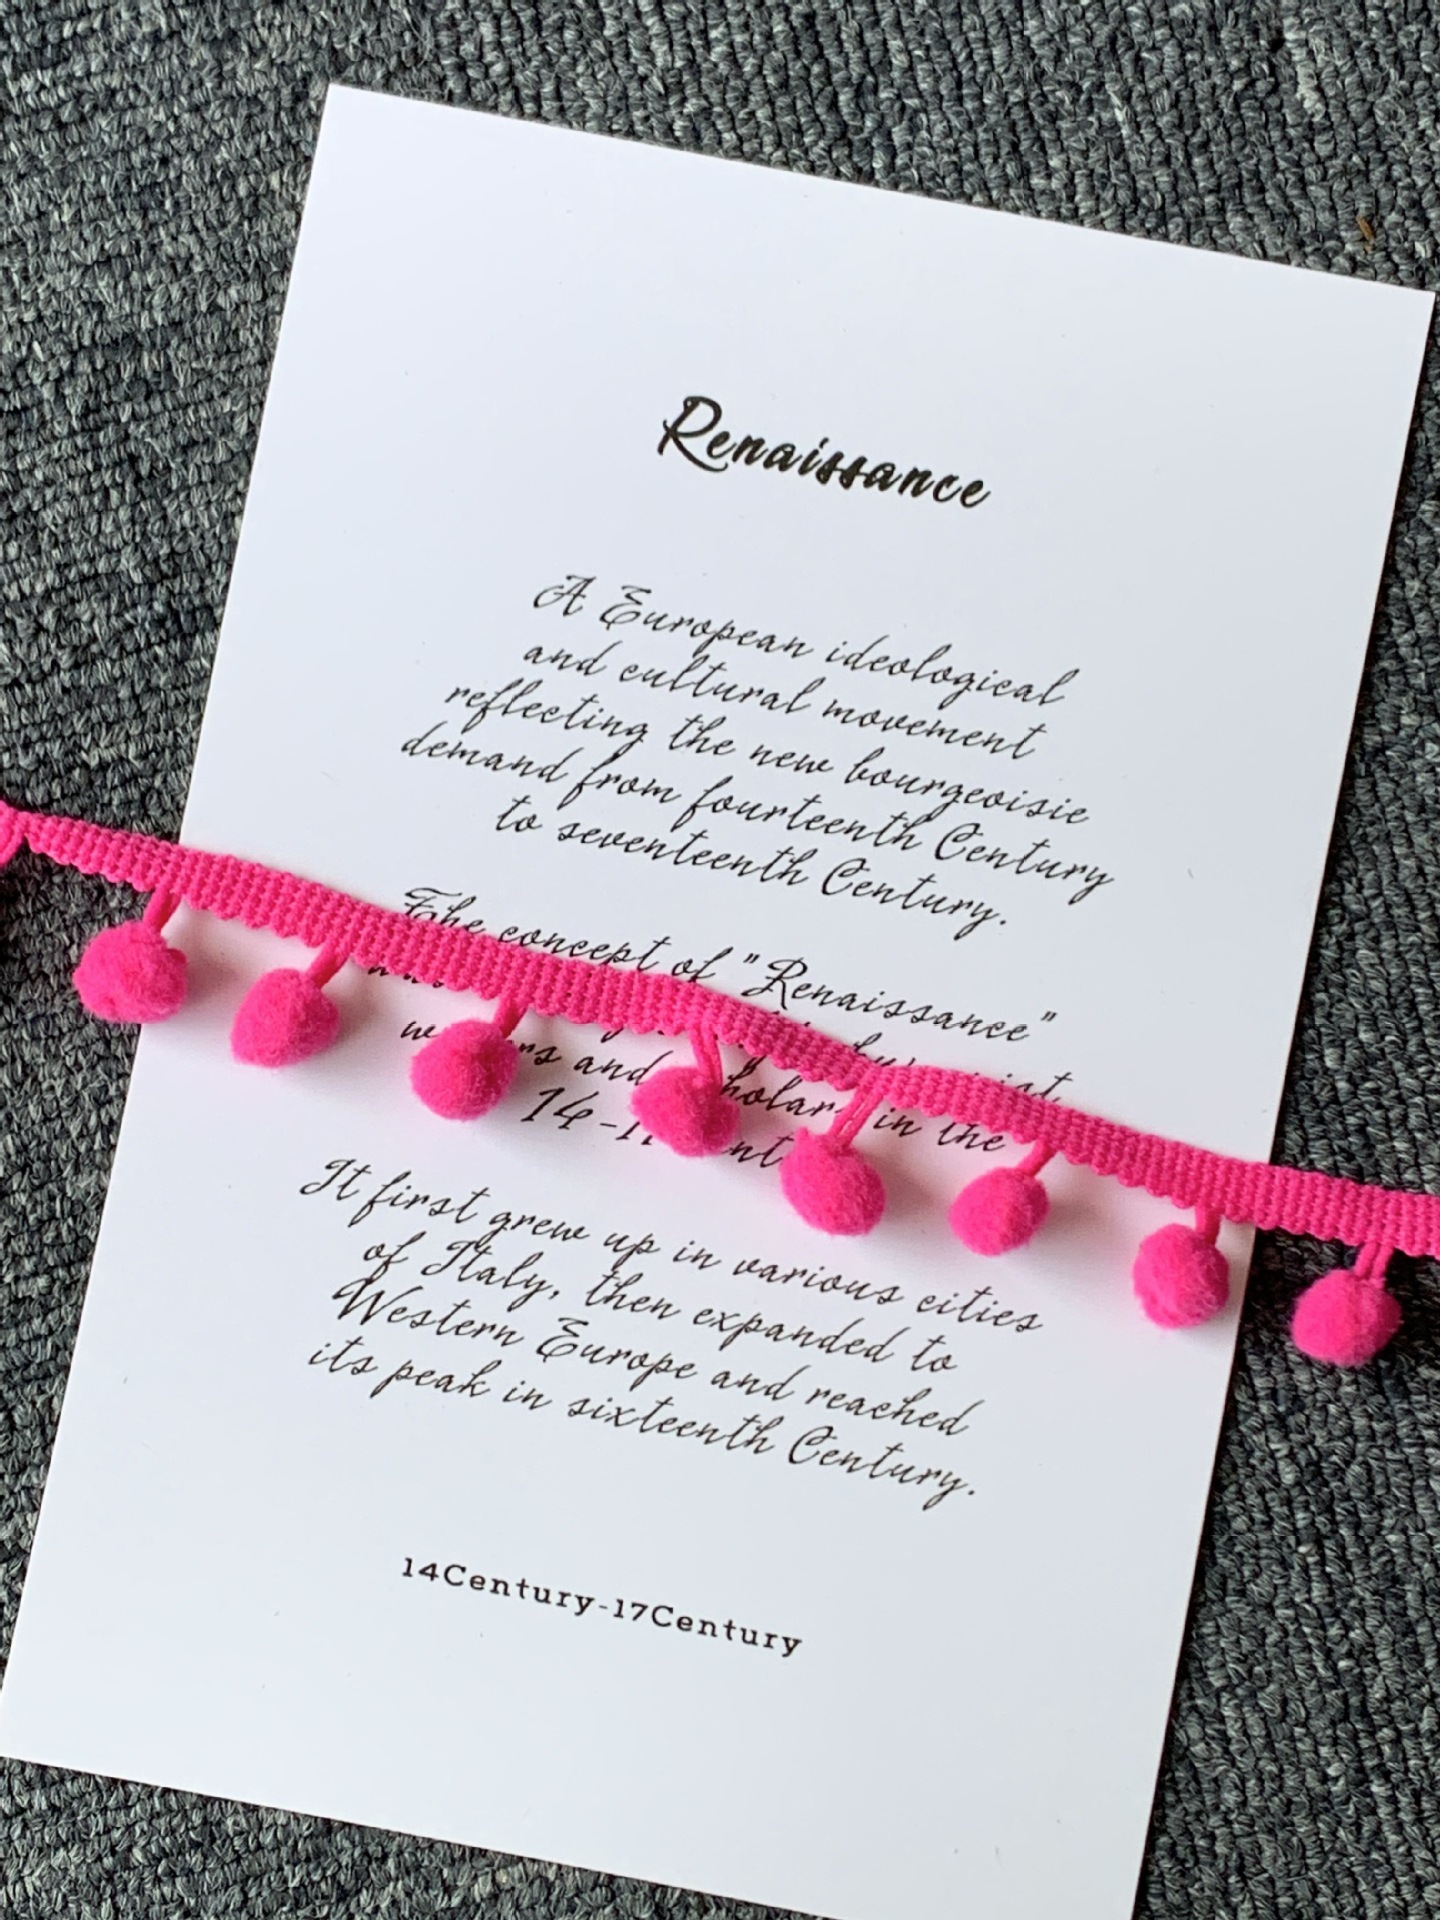 Renaissance
A European ideological
and cultural movement
reflecting the new bourgeoisie
demand from fourteenth Century
to seventeenth Century.
The concept of "Renaissance"
and in the
14-
It first grew up in various cities
of Italy, then expanded to
Western Europe and reached
its peak in sixteenth Century.
14Century-17Century